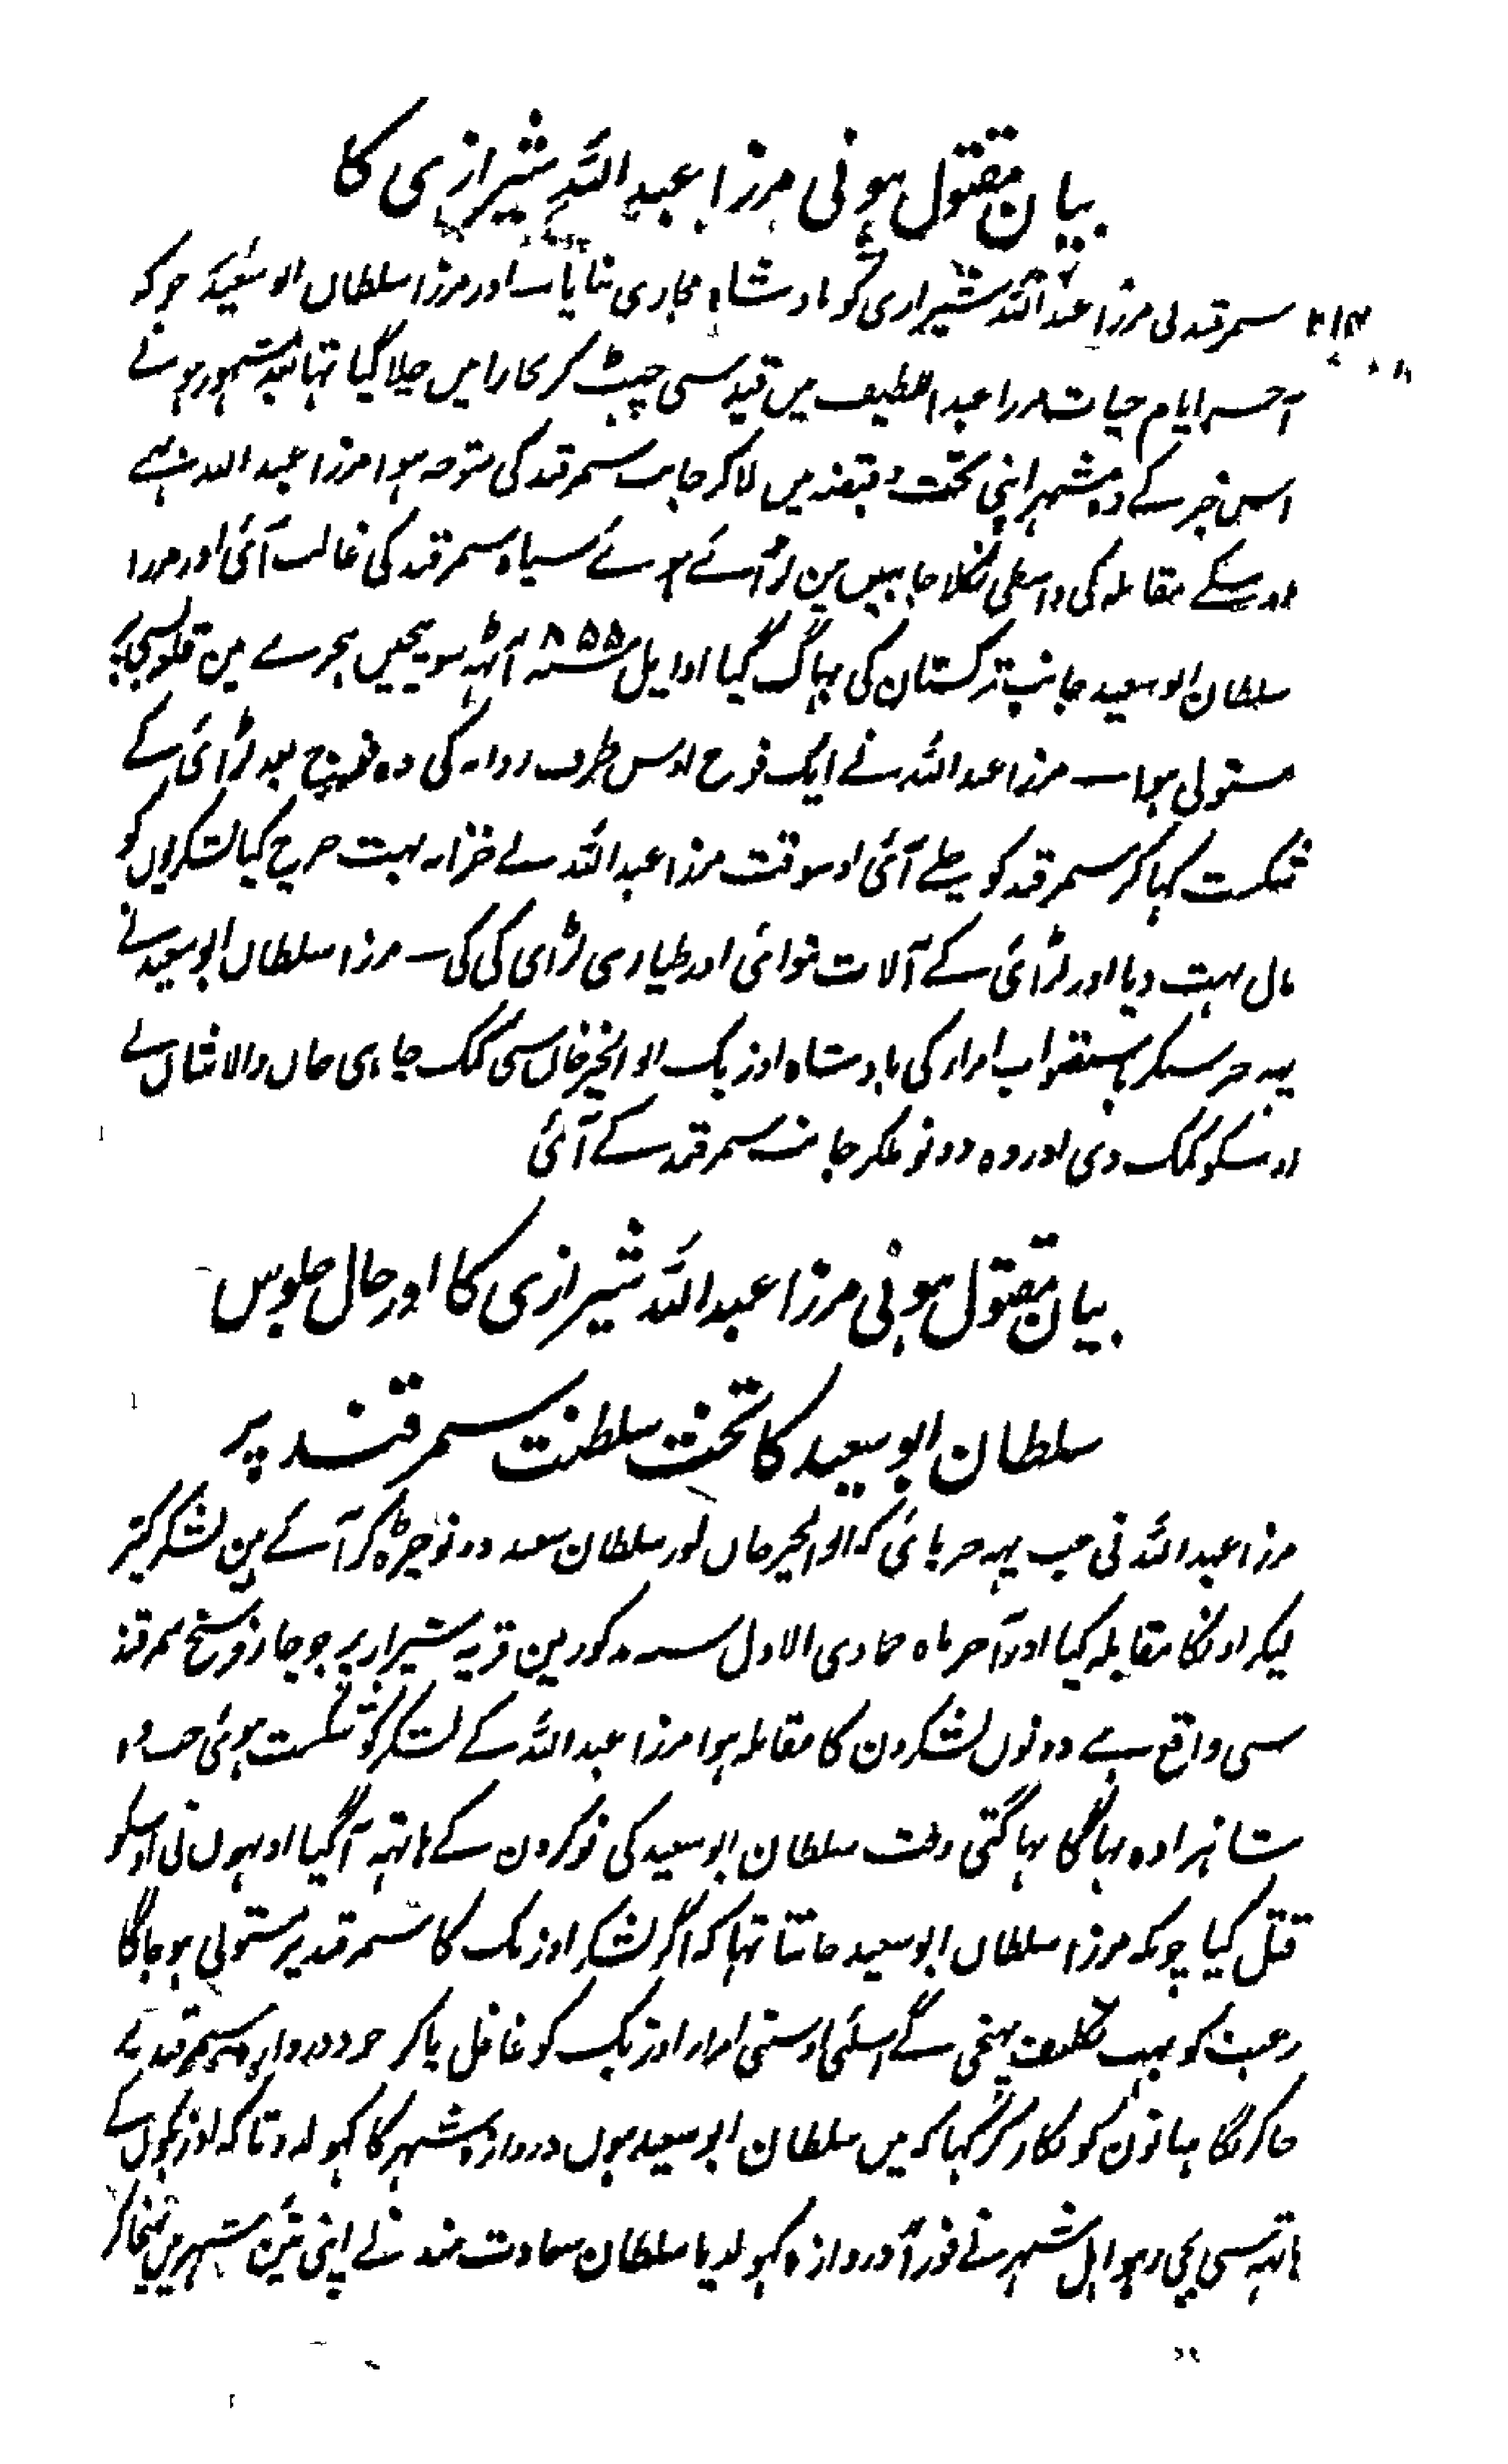 بیان مقتول ہونی مرزا عبد اللہ شیرازی کا
سمرقند لی مرزا عبد اللہ شیرازی کو بادشاہ مجازی بنایا اور مرزا سلطان ابو سعید جو کہ
آخر ایام حیات مرزا عبد اللطیف میں قید سی چھٹ کر بخارا میں چلا گیا تہا بعد مشہور ہونے
اس خبر کے وہ شہر اپنی تحت و قبضہ میں لا کر جانب سمرقند کی متوجہ ہوا مرزا عبد اللہ بہی
اوسکے مقابلہ کی واسطی نکلا جانبین مین لڑائے ہوئے سپاہ سمرقند کی غالب آئی اور مرزا
سلطان ابو سعید جانب ترکستان کی بہاگ گیا اوایل ۸۵۵ آٹہہ سو پچپن ہجرے مین قلعہ
مستولی ہوا مرزا عبد اللہ نے ایک فوج اوس طرف روانہ کی وہ فوج بعد لڑائی کے
شکست کہا کر سمرقند کو چلے آئی اوسوقت مرزا عبد اللہ نے خزانہ بہت خرچ کیا لشکریوں کو
مال بہت دیا اور لڑائی کے آلات بنوائی اور طیاری لڑای کی کی مرزا سلطان ابو سعید نے
یہہ خبر سنکر باستصواب امرا کی بادشاہ اوزبک ابو الخیر خان سی کمک چاہی خان والا شان نے
اوسکو کمک دی اور وہ دونو ملکر جانب سمرقند کے آئی
بیان مقتول ہونی مرزا عبد اللہ شیرازی کا اور حال جلوس
سلطان ابو سعید کا تخت سلطنت سمرقند پر
مرزا عبد اللہ نی جب یہہ خبر پائی کہ ابو الخیر خان اور سلطان سعید دونو چڑہ کر آئے ہین لشکر کثیر
لیکر اونکا مقابلہ کیا اور آخر ماہ جمادی الاول سنہ مذکور مین قریہ شیراز پر جو چار فرسخ سمرقند
سی واقع ہے دونوں لشکرون کا مقابلہ ہوا مرزا عبد اللہ کے لشکر کو شکست ہوئی جب وہ
شاہزادہ بہاگا بہاگتی وقت سلطان ابو سعید کی نوکرون کے ہاتہہ آگیا اونہوں نی اوسکو
قتل کیا چونکہ مرزا سلطان ابو سعید جانتا تہا کہ اگر لشکر اوزبک کا سمرقند پر مستولی ہو جاگا
رعیت کو بہت تکلیف پہنچی گے اسلئی اوسنی امرار اوزبک کو غافل پاکر خود دروازہ سمرقند پے
جا کر نگاہبانون کو پکار کر کہا کہ میں سلطان ابو سعید ہوں دروازہ شہر کا کہولدو تاکہ اوزبکوں کے
ہاتہہ سی بچی رہو اہل شہر نے فوراً دروازہ کہولدیا سلطان سعادت مند نے اپنی تئین شہر میں پہنچا کر